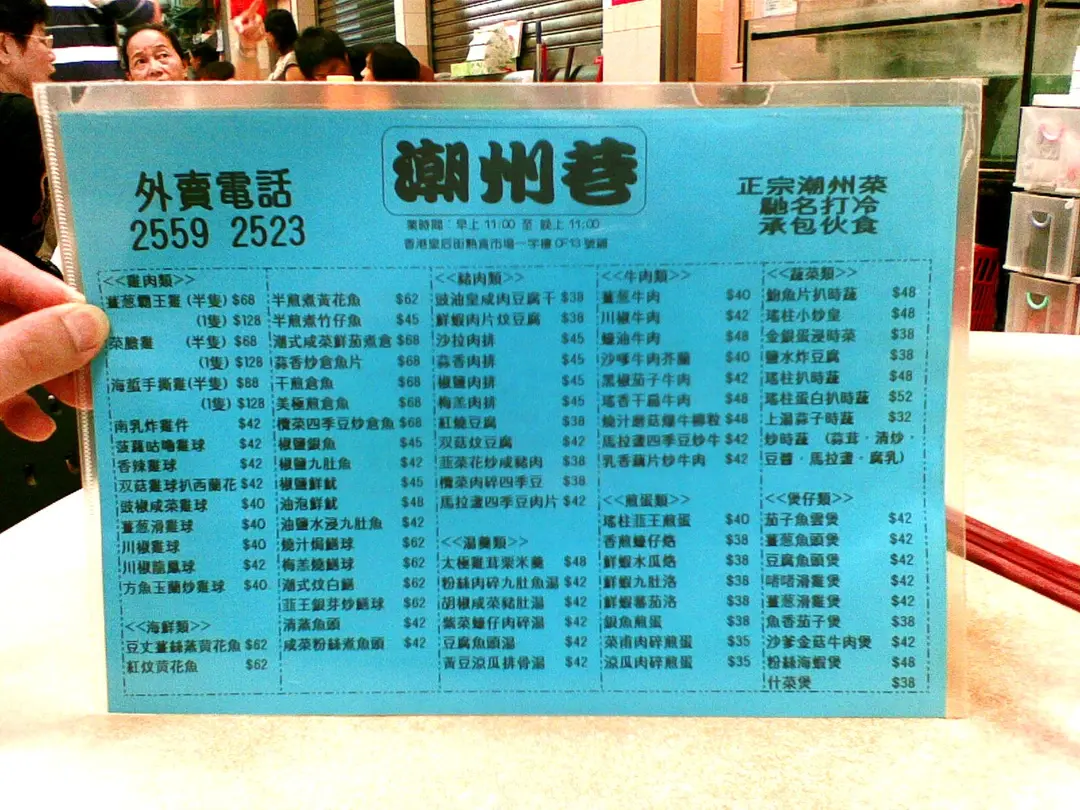 潮州巷
外賣電話
2559 2523
業時間：早上 11:00 至 晚上 11:00
香港皇后街熟食市場一字樓 CF13 號鋪
正宗潮州菜
馳名打冷
承包伙食
<<雞肉類>>
薑葱霸王雞 (半隻) $68
(1隻) $128
菜膽雞 (半隻) $68
(1隻) $128
海蜇手撕雞(半隻) $88
(1隻) $128
南乳炸雞件 $42
菠蘿咕嚕雞球 $42
香辣雞球 $42
双菇雞球扒西蘭花 $42
豉椒咸菜雞球 $40
薑葱滑雞球 $40
川椒雞球 $40
川椒龍鳳球 $42
方魚玉蘭炒雞球 $40
<<海鮮類>>
豆丈薑絲蒸黄花魚 $62
紅炆黄花魚 $62
半煎煮黃花魚 $62
半煎煮竹仔魚 $45
潮式咸菜鮮茄煮倉 $68
蒜香炒倉魚片 $68
干煎倉魚 $68
美極煎倉魚 $68
欖菜四季豆炒倉魚 $68
椒鹽銀魚 $45
椒鹽九肚魚 $42
椒鹽鮮魷 $45
油泡鮮魷 $48
油鹽水浸九肚魚 $42
燒汁焗鱔球 $62
梅羔燒鱔球 $62
潮式炆白鱔 $62
韮王銀芽炒鱔球 $62
清蒸魚頭 $42
咸菜粉絲煮魚頭 $42
<<豬肉類>>
豉油皇咸肉豆腐干 $38
鮮蝦肉片炆豆腐 $38
沙拉肉排 $45
蒜香肉排 $45
椒鹽肉排 $45
梅羔肉排 $45
紅燒豆腐 $38
双菇炆豆腐 $42
韮菜花炒咸豬肉 $38
欖菜肉碎四季豆 $38
馬拉盞四季豆肉片 $42
<<湯羹類>>
太極雞茸栗米羹 $48
粉絲肉碎九肚魚湯 $42
胡椒咸菜豬肚湯 $42
紫菜蠔仔肉碎湯 $42
豆腐魚頭湯 $42
黃豆涼瓜排骨湯 $42
<<牛肉類>>
薑葱牛肉 $40
川椒牛肉 $42
蠔油牛肉 $48
沙嗲牛肉芥蘭 $40
黑椒茄子牛肉 $42
瑤香干扁牛肉 $48
燒汁磨菇爆牛柳粒 $48
馬拉盞四季豆炒牛 $42
乳香藕片炒牛肉 $42
<<煎蛋類>>
瑤柱韮王煎蛋 $40
香煎蠔仔烙 $38
鮮蝦水瓜烙 $38
鮮蝦九肚洛 $38
鮮蝦蕃茄洛 $38
銀魚煎蛋 $38
菜甫肉碎煎蛋 $35
涼瓜肉碎煎蛋 $35
<<蔬菜類>>
鮑魚片扒時蔬 $48
瑤柱小炒皇 $48
金銀蛋浸時菜 $38
鹽水炸豆腐 $38
瑤柱扒時蔬 $48
瑤柱蛋白扒時蔬 $52
上湯蒜子時蔬 $32
炒時蔬 (蒜茸．清炒．
豆醬．馬拉盞．腐乳)
<<煲仔類>>
茄子魚雲煲 $42
薑葱魚頭煲 $42
豆腐魚頭煲 $42
啫啫滑雞煲 $42
薑葱滑雞煲 $42
魚香茄子煲 $38
沙爹金菇牛肉煲 $42
粉絲海蝦煲 $48
什菜煲 $38